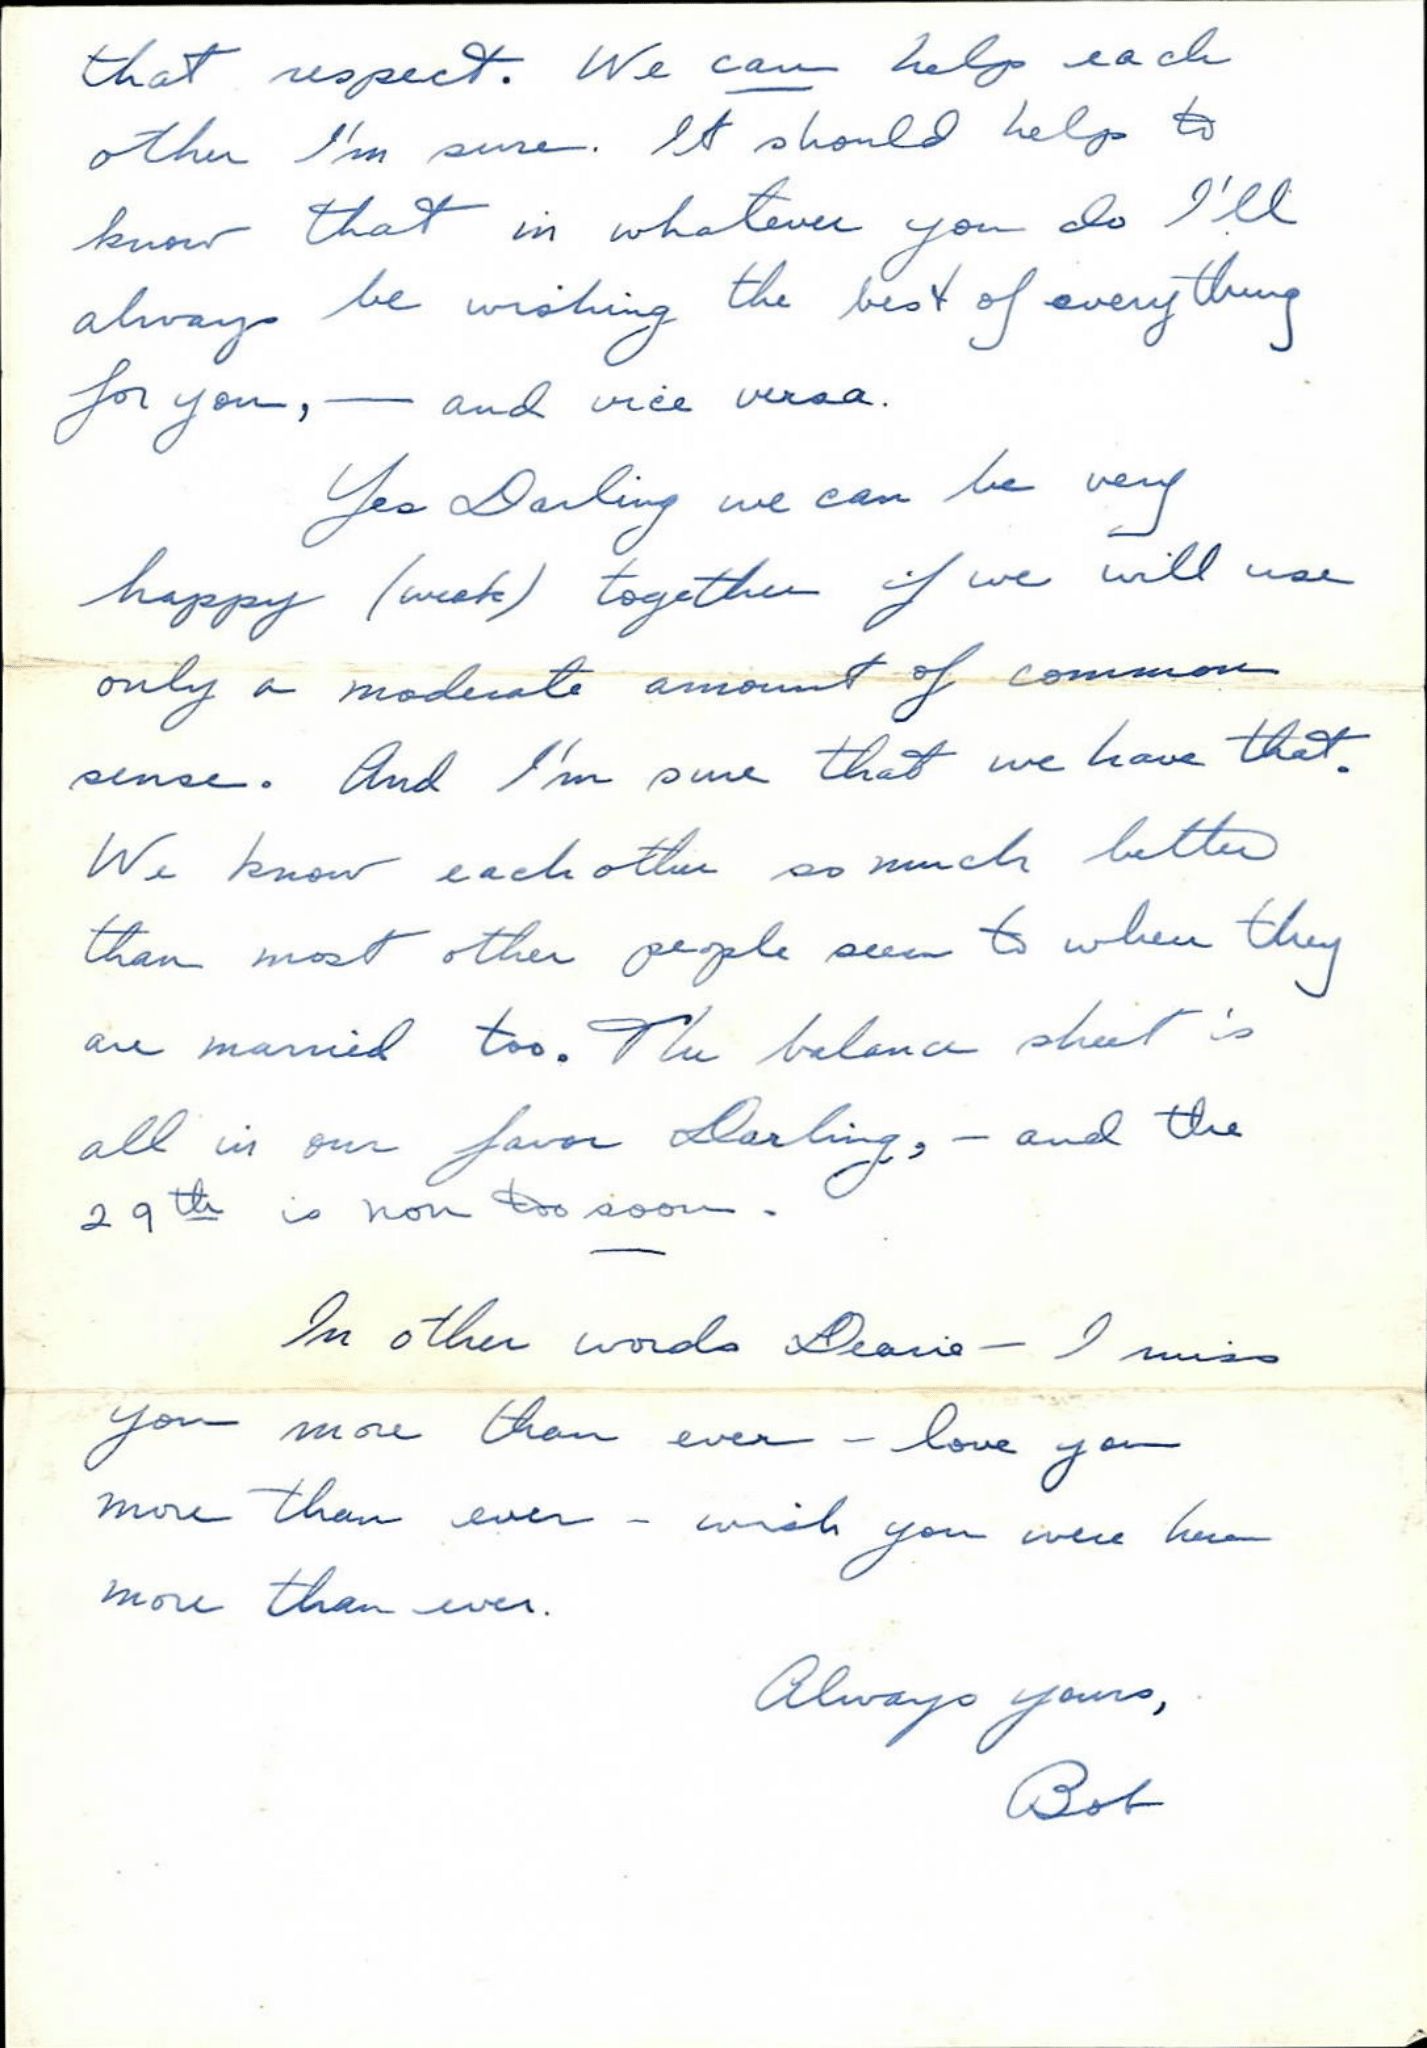 that respect. We can help each
other I'm sure. It should help to
know that in whatever you do I'll
always be wishing the best of everything
for you, — and vice versa.
Yes Darling we can be very
happy (weak) together if we will use
only a moderate amount of common
sense. And I'm sure that we have that.
We know eachother so much better
than most other people seem to when they
are married too. The balance sheet is
all in our favor Darling, - and the
29th is non too soon.
In other words Dearie - I miss
you more than ever - love you
more than ever - wish you were here
more than ever.
Always yours,
Bob